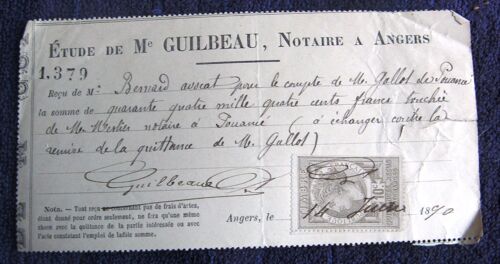 ÉTUDE DE Mᵉ GUILBEAU, NOTAIRE A ANGERS
1.379
Reçu de M. Bernard avocat pour le compte de M. Gallot de Pouancé
la somme de quarante quatre mille quatre cents francs touchée
de M. notaire à Pouancé (à échanger contre la
remise de la quittance de M. Gallot)
Guilbeau
Nota. — Tout reçu ne concernant pas de frais d'actes,
étant donné pour ordre seulement, ne fera qu'une même
chose avec la quittance de la partie intéressée ou avec
l'acte constatant l'emploi de ladite somme.
Angers, le 14 Juin 1890